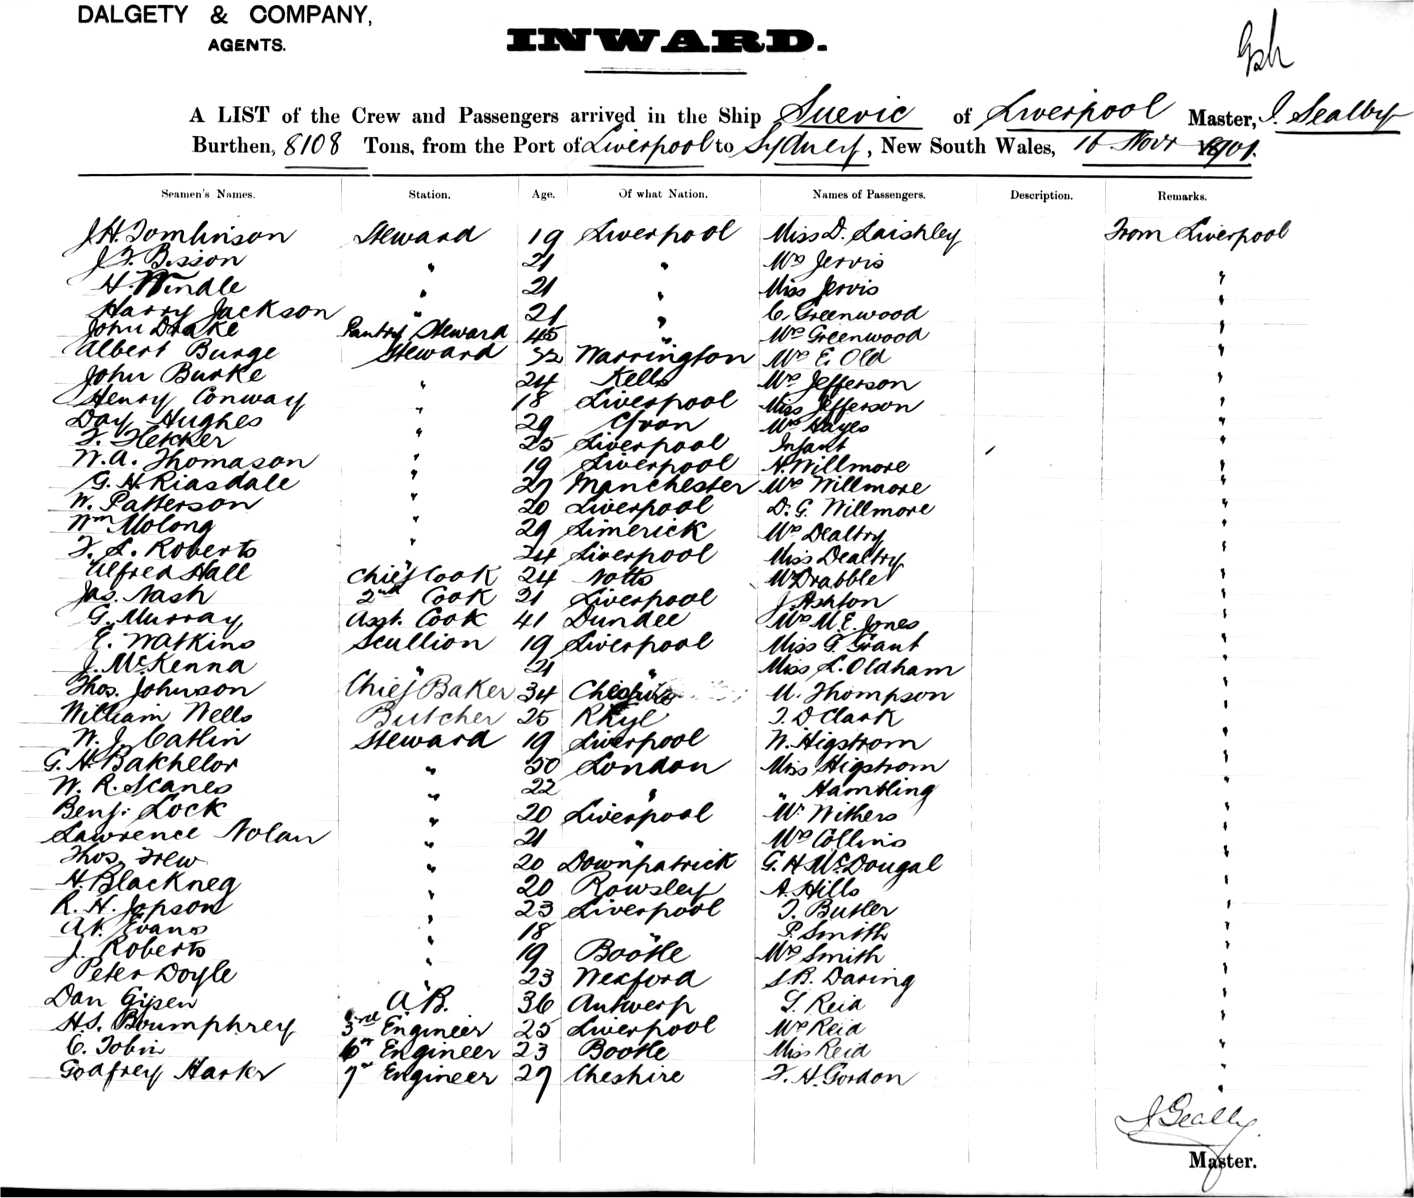 DALGETY & COMPANY,
AGENTS.
INWARD.
A LIST of the Crew and Passengers arrived in the Ship Suevic of Liverpool Master, J. Sealby
Burthen, 8108 Tons, from the Port of Liverpool to Sydney, New South Wales, 16 Novr 1901.
Seamen's Names. Station. Age. Of what Nation. Names of Passengers. Description. Remarks.
J.H. Tomlinson Steward 19 Liverpool Miss D. Laishley From Liverpool
J.F. Bisson " 21 " Mrs Jervis "
H. Windle " 21 " Miss Jervis "
Harry Jackson " 21 " C. Greenwood "
John Drake Pantry Steward 45 " Mrs Greenwood "
Albert Burge Steward 32 Warrington Mrs E. Old "
John Burke " 24 Kells Mrs Jefferson "
Henry Conway " 18 Liverpool Miss Jefferson "
Day Hughes " 29 Mrs Hayes "
F. Fletcher " 25 Liverpool Infant "
W.A. Thomason " 19 Liverpool H. Willmore "
G.H. Riasdale " 27 Manchester Mrs Willmore "
W. Patterson " 20 Liverpool D.G. Willmore "
Wm Molong " 29 Limerick Mrs Dealtry "
F.L. Roberts " 24 Liverpool Miss Dealtry "
Alfred Hall Chief Cook 24 Notts W Drabble "
Jas. Nash 2nd Cook 21 Liverpool J Ashton "
G. Murray Asst. Cook 41 Dundee Mrs M.E. Jones "
E. Watkins Scullion 19 Liverpool Miss G. Grant "
J. McKenna " 21 " Miss L. Oldham "
Thos. Johnson Chief Baker 34 Cheshire M. Thompson "
William Wells Butcher 25 Rhyl F. D Clark "
W.J. Catlin Steward 19 Liverpool W. Higstrom "
G.H. Batchelor " 30 London Miss Higstrom "
W.R. Scanes " 22 " " Hambling "
Benj: Lock " 20 Liverpool W. Withers "
Lawrence Nolan " 21 " Mrs Collins "
Thos Trew " 20 Downpatrick G.H. McDougal "
H. Blackney " 20 Rowsley A. Hills "
R.H. Jopson " 23 Liverpool T. Butler "
Evans " 18 " P. Smith "
J. Roberts " 19 Bootle Mrs Smith "
Peter Doyle " 23 Wexford S.B. Daring "
Dan Gipen A.B. 36 Antwerp L. Reid "
H.S. Boumphrey 3rd Engineer 25 Liverpool Mrs Reid "
C. Tobin 6th Engineer 23 Bootle Miss Reid "
Godfrey Harker 7th Engineer 27 Cheshire F.H. Gordon "
J Sealby
Master.